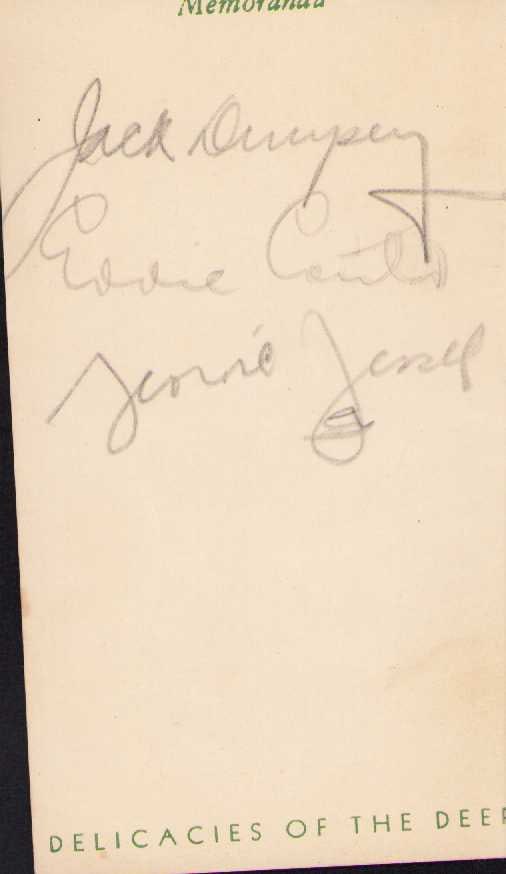 Memoranda
Jack Dempsey
Eddie Cantor
Georgie Jessel
DELICACIES OF THE DEEP